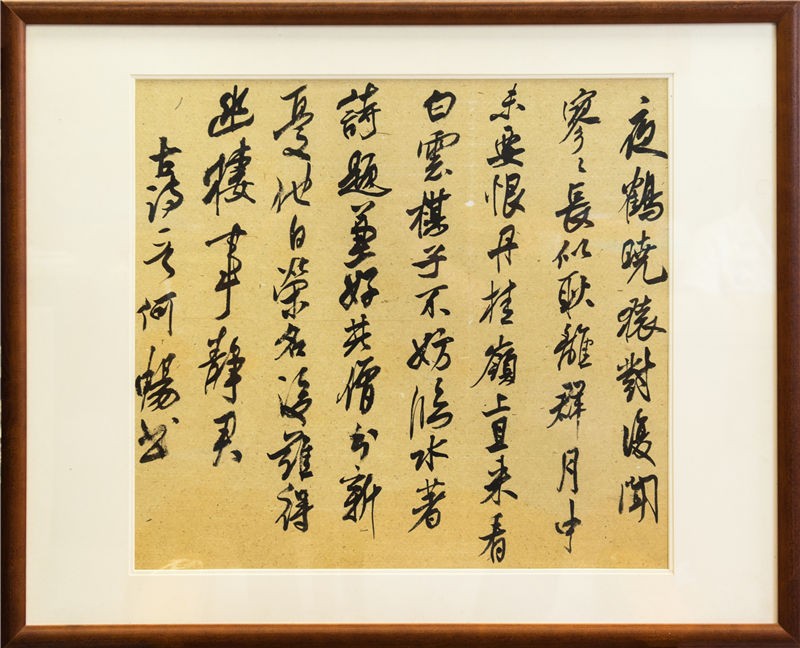 夜鶴曉猿對復聞
寥々長似耿離群月中
未要恨丹桂嶺上且来看
白雲棋子不妨臨水著
詩題兼好共僧分新
憂他日榮名後難得
幽棲事靜君
古诗一首何暢书